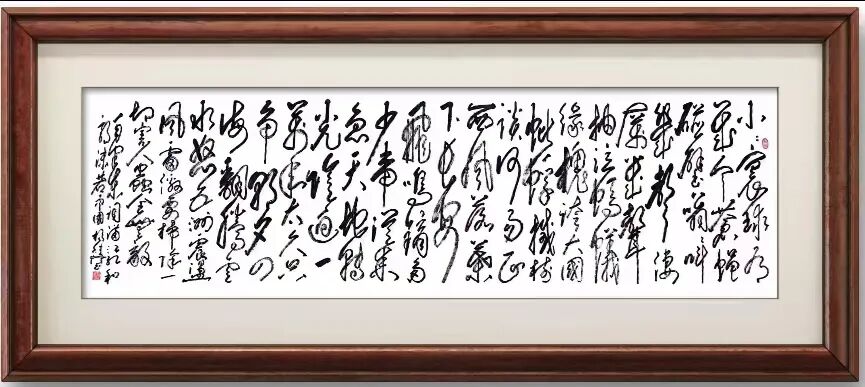 小小寰球有
几个苍蝇
碰壁嗡嗡叫
几声凄
厉几声
抽泣蚂蚁
缘槐夸大国
蚍蜉撼树
谈何易正
西风落叶
下长安
飞鸣镝多
少事从来
急天地转
光阴迫一
万年太久只
争朝夕四
海翻腾云
水怒五洲震荡
风雷激要扫除一
切害人虫全无敌
毛泽东词满江红和
郭沫若